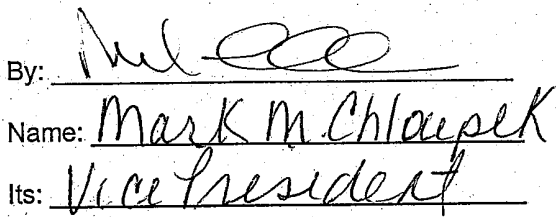 By:
Name: Mark M. Chloupek
Its: Vice President